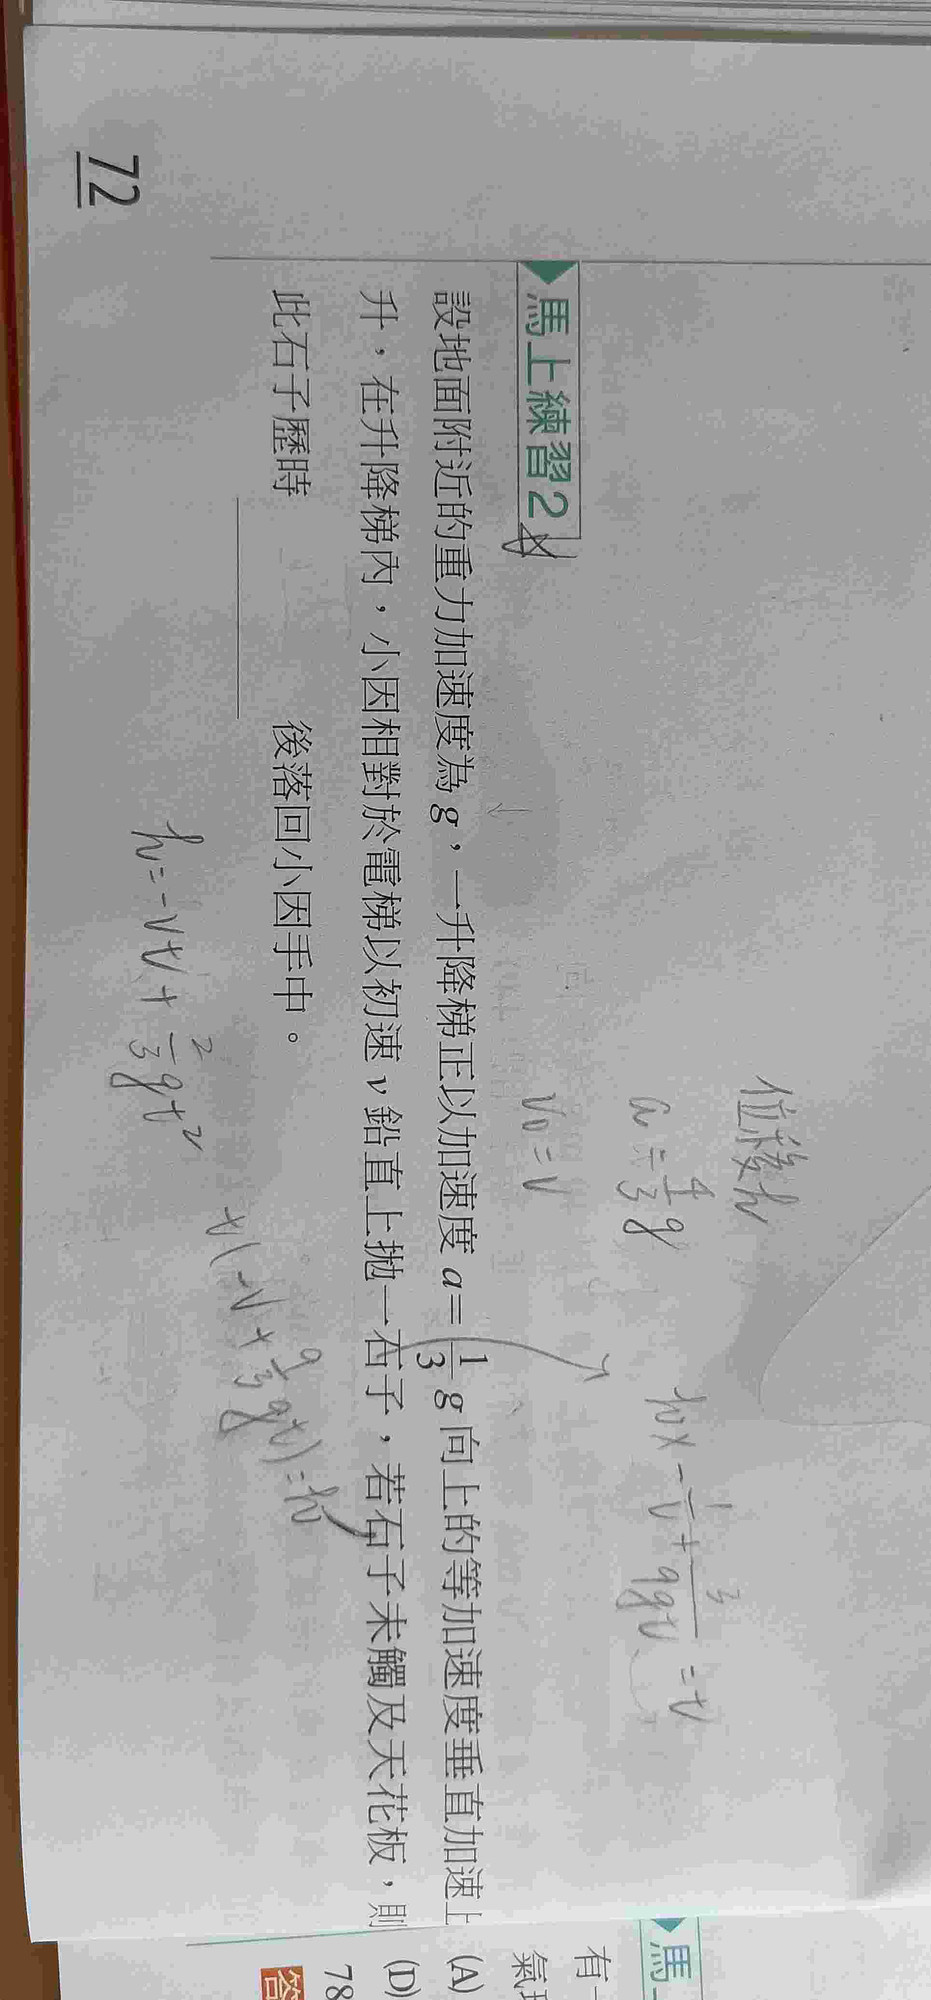 馬上練習2
設地面附近的重力加速度為g，一升降梯正以加速度a=1/3 g向上的等加速度垂直加速上
升，在升降梯內，小因相對於電梯以初速v鉛直上拋一石子，若石子未觸及天花板，則
此石子歷時後落回小因手中。
位移h
a=4/3 g
V0=V
h=-Vt+2/3 gt²
72
馬
有
(A)
(D)
78
答